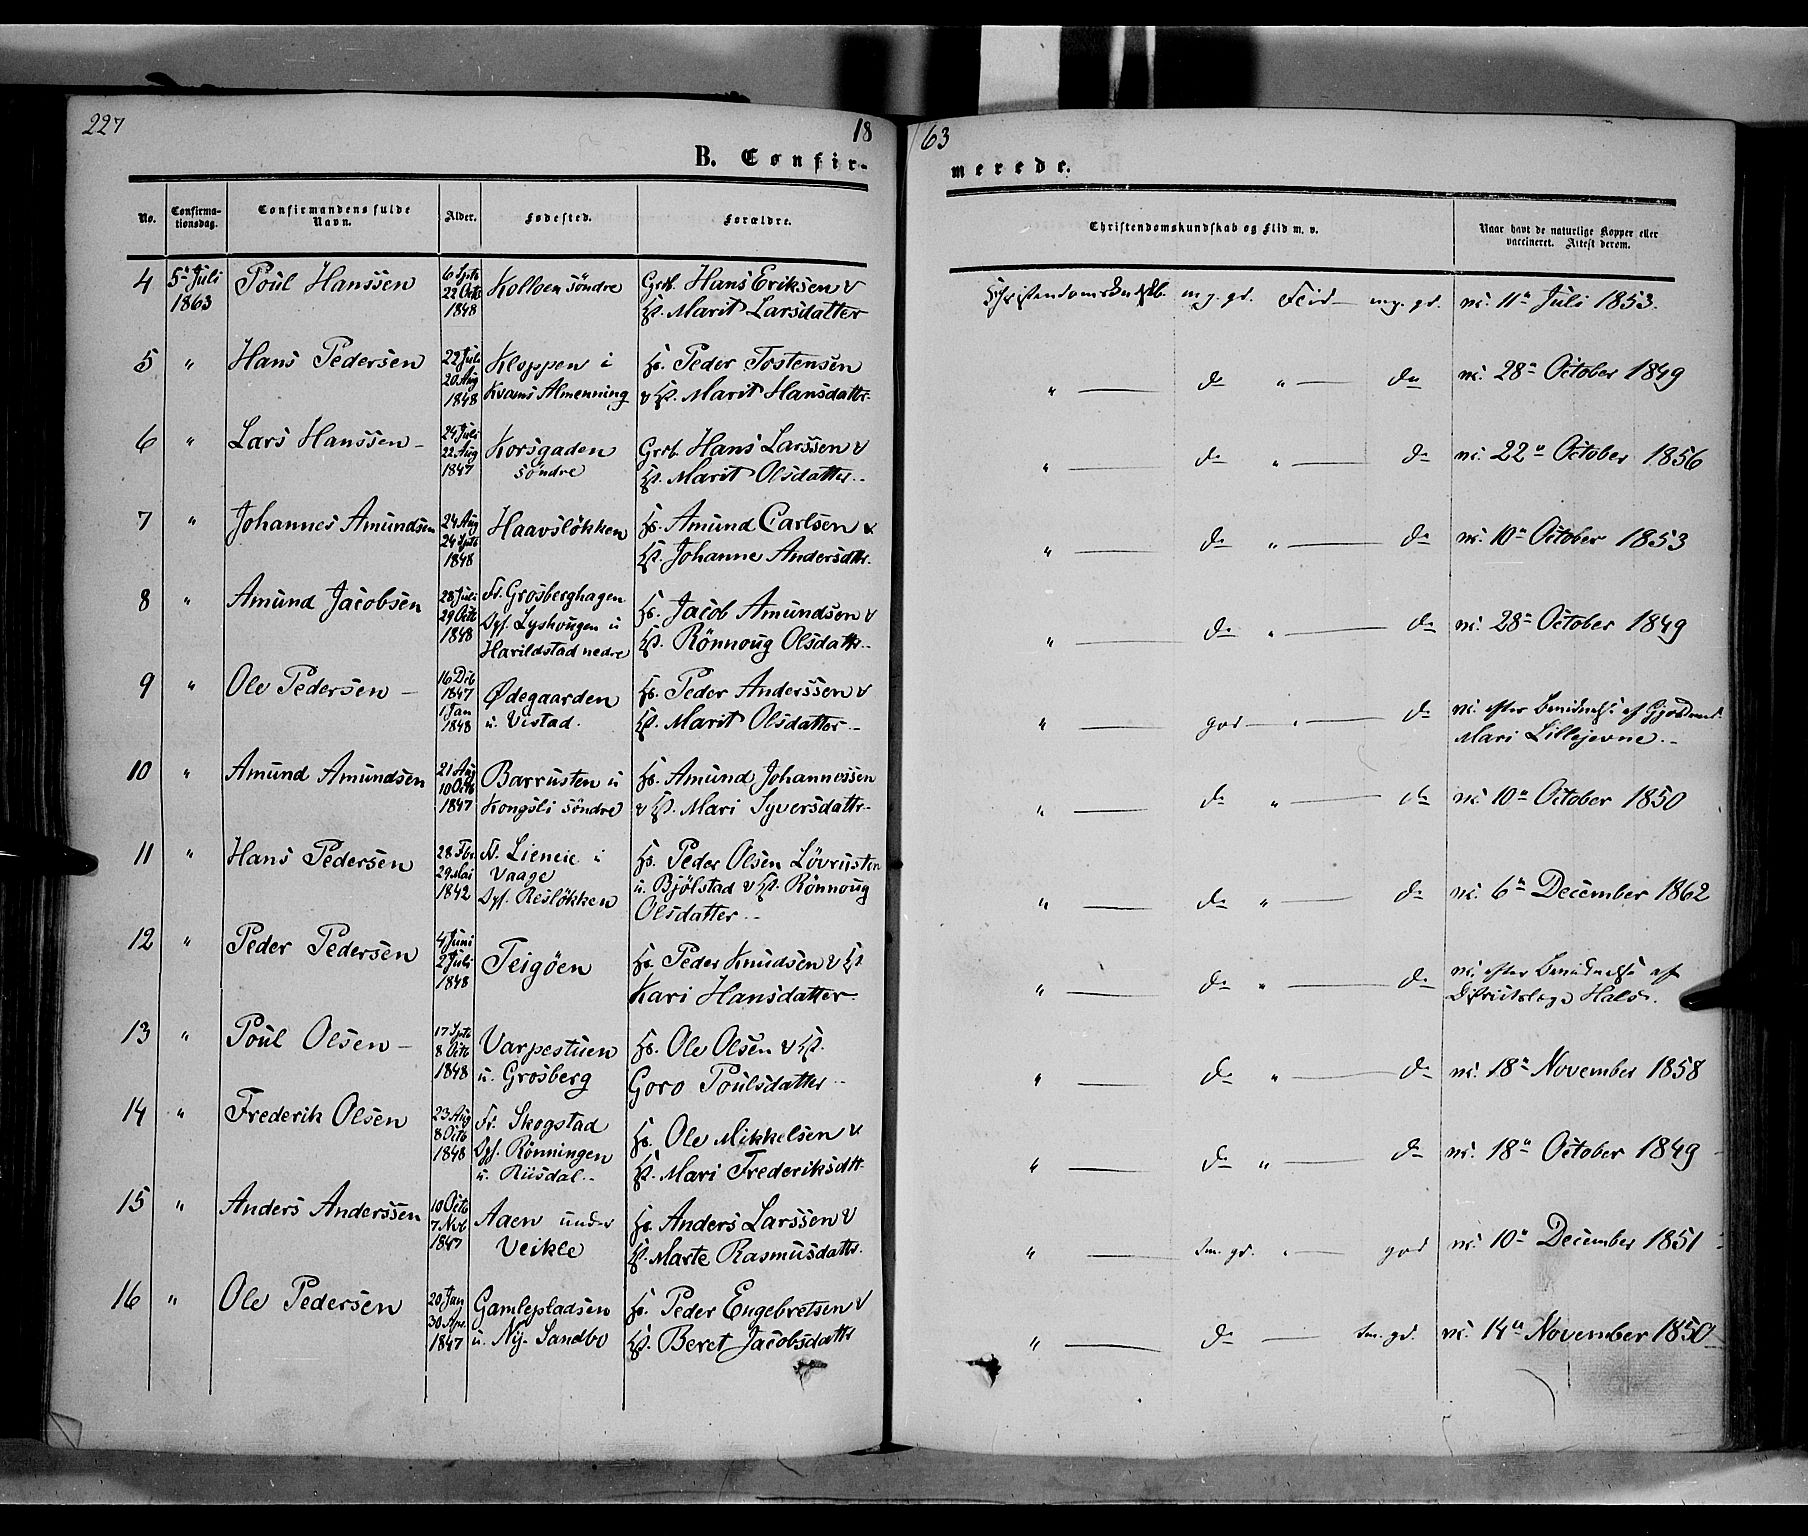 227
18
63
B. Confir-
merede.
No.
Confirma-
tionsdag.
Confirmandens fulde
Navn.
Alder.
Fødested.
Forældre.
Christendomskundskab og Flid m. v.
Naar havt de naturlige Kopper eller
vaccineret. Attest derom.
4 5te Juli 1863 Poul Hanssen 6 Septb 22 Octb 1848 Kolloen söndre Grb. Hans Eriksen &
Marit Larsdatter
Christendomskundskb. m. g. gd. Flid — m. g. gd. vc. 11te Juli 1853.
5 " Hans Pedersen 22 Juli 20 Aug 1848 Kloppen i
Kvams Almenning
Hs. Peder Tostensen
& Marit Hansdattr.
" — do " — do vc. 28de October 1849
6 " Lars Hanssen — 24 Juli 22 Aug 1847 Korsgaden
söndre
Grb. Hans Larssen &
Marit Olsdatter.
" — do " — do vc. 22de October 1856
7 " Johannes Amundsen 24 Aug 24 Septb 1848 Haavslökken
Hs. Amund Carlsen &
Johanne Andersdttr.
" — do " — do vc. 10de October 1853
8 " Amund Jacobsen 28 Juli 29 Octb 1848 Fr. Grosberghagen
Lyshougen u
Harildstad nedre
Hs. Jacob Amundsen &
Rönnoug Olsdattr.
" — do " — do vc. 28de October 1849
9 " Ole Pedersen — 16 Dcb 1847 1 Jan 1848 Ødegaarden
u. Vistad.
Hs. Peder Anderssen &
Marit Olsdatter.
" — god — " — do vc. efter af
Mari Lillejevne.
10 " Amund Amundsen 21 Aug 10 Octb 1847 Barrusten u
Kongsli söndre
Hs. Amund Johannessen
& Mari Syversdattr.
" — do " — do vc. 10de October 1850
11 " Hans Pedersen 28 Fbr 29 Mai 1842 Fr. Lieneie i
Vaage
Reslökken
Hs. Peder Olsen Lövrusten
u. Bjölstad & Rönnoug
Olsdatter.
" — do " — do vc. 6te December 1862
12 " Peder Pedersen 4 Juni 2 Juli 1848 Teigöen
Hs. Peder Knudsen &
Kari Hansdatter.
" — do " — do vc. efter af
Hals.
13 " Poul Olsen — 17 Septb 8 Octb 1848 Varpestuen
u. Grosberg
Hs. Ole Olsen &
Goro Poulsdatter.
" — do " — do vc. 18de November 1858
14 " Frederik Olsen 23 Aug 8 Octb 1848 Fr. Skogstad
Rönningen
u. Rusdal.
Hs. Ole Mikkelsen &
Mari Frederiksdtr.
" — do " — do vc. 18de October 1849
15 " Anders Anderssen 10 Octb 7 Nvb 1847 Aaen under
Veikle
Hs. Anders Larssen &
Marte Rasmusdattr.
" — tm. gd. " — god vc. 10de December 1851
16 " Ole Pedersen 20 Jan 30 Apr. 1847 Gamlepladsen
u. Nij. Sandbo
Hs. Peder Engebretsen &
Beret Jacobsdattr
" — do — tm. gd. vc. 14de November 1850